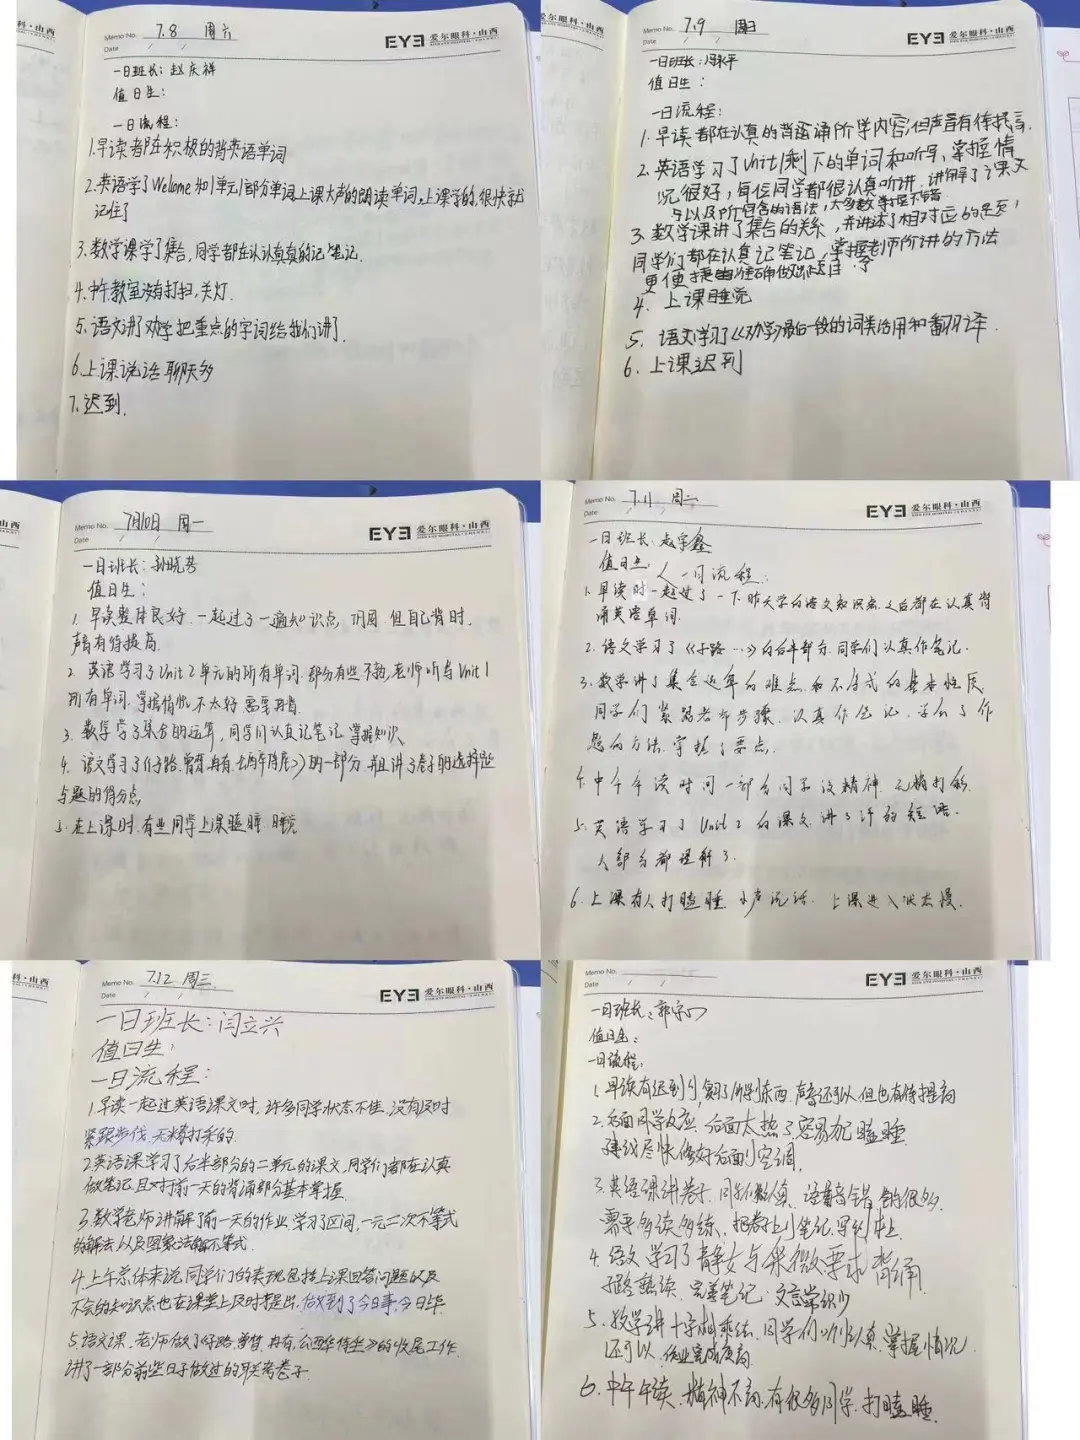 Memo No.
Date
7.8 周六
EYE 爱尔眼科·山西
一日班长：赵庆祥
值日生：
一日流程：
1.早读都在积极的背英语单词
2.英语学了Welcome和1单元1部分单词,上课大声的朗读单词,上课学的,很快就
记住了
3.数学课学了集合,同学都在认认真真的记笔记.
4.中午教室没有打扫,关灯.
5.语文讲了劝学把重点的字词给我们讲了.
6.上课说话聊天多
7.迟到.
眼科·山西
Memo No.
Date
7.9 周日
EYE 爱尔眼科·山西
一日班长：冯永平
值日生：
一日流程：
1.早读都在认真的背诵所学内容,但声音有待提高.
2.英语学习了Unit1剩下的单词和听写,掌握情
况很好,每位同学都很认真听讲.讲解了课文
以及所包含的语法,大多数掌握不错.
3.数学课讲了集合的关系,并讲述了相对应的题
同学们都在认真记笔记,掌握老师所讲的方法
更便捷准确做出题目.
4.上课睡觉
5.语文学习了《劝学》最后一段的词类活用和翻译.
6.上课迟到
Memo No.
Date
7月10日 周一
EYE 爱尔眼科·山西
一日班长：孙晓
值日生：
1.早读整体良好.一起过了一遍知识点,巩固,但自己背时,
声音有待提高.
2.英语学习了Unit2单元的所有单词.部分有些不熟,老师听写Unit1
所有单词.掌握情况不太好需要再背.
3.数学学了集合的运算,同学们认真记笔记掌握知识
4.语文学习了《子路.曾皙.冉有.公西华侍坐》的一部分.并且讲了卷子的选择题
与题的得分点.
5.在上课时.有些同学上课瞌睡.睡觉
Memo No.
Date
7.11 周二
EYE 爱尔眼科·山西
一日班长：赵宇鑫
值日生：
一日流程：
1.早读时一起过了一下昨天学的语文知识点,之后都在认真背
诵英语单词.
2.语文学习了《子路…》的后半部分.同学们认真作笔记.
3.数学讲了集合近年的难点和不等式的基本性质
同学们紧跟老师步骤.认真作笔记.学会了作
题的方法.掌握了要点.
4.中午午读时间一部分同学没精神.无精打彩.
5.英语学习了Unit2的课文.讲了许多的短语.
大部分都理解了.
6.上课有人打瞌睡.小声说话.上课进入状态慢.
眼科·山西
Memo No.
Date
7.12 周三.
EYE 爱尔眼科·山西
一日班长：闫立兴
值日生：
一日流程：
1.早读一起过英语课文时,许多同学状态不佳,没有及时
紧跟步伐.无精打采的.
2.英语课学习了后半部分的二单元的课文.同学们都在认真
做笔记.且对于前一天的背诵部分基本掌握.
3.数学老师讲解了前一天的作业.学习了区间,一元二次不等式
的解法以及图象法解不等式.
4.上午总体来说,同学们的表现包括上课回答问题以及
不会的知识点也在课堂上及时提出.做到了今日事,今日毕.
5.语文课.老师做了《子路.曾皙.冉有.公西华侍坐》的收尾工作.
讲了一部分前些日子做过的联考卷子.
Memo No.
Date
EYE 爱尔眼科·山西
一日班长：郭宗
值日生：
一日流程：
1.早读有迟到的,复习了所学东西.声音还可以,但也有待提高
2.后面同学反应.后面太热了.容易加瞌睡
建议尽快修好后面的空调.
3.英语课讲卷子.同学们较认真.语音错的很多.
需要多读多练.把卷子上的笔记写到本上
4.语文学习了静女与采薇要求背诵
子路熟读.完善笔记.文言常识
5.数学讲十字相乘法.同学们听的认真.掌握情况
还可以.作业完成度高
6.中午午读.精神不高,有很多同学.打瞌睡.